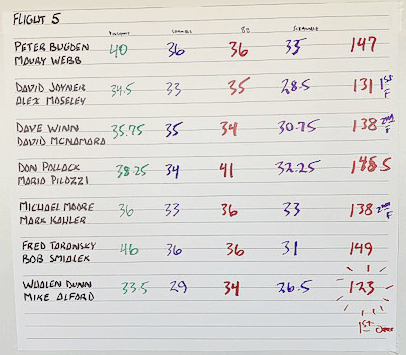 FLIGHT 5
BB SCRAMBLE
PETER BUGDEN 40 36 36 35 147
MAURY WEBB
DAVID JOYNER 34.5 33 35 28.5 131 1ST F
ALEX MOSELEY
DAVE WINN 35.75 35 34 30.75 138 2ND F
DAVID MCNAMARA
DON POLLACK 38.25 34 41 32.25 145.5
MARIO PILOZZI
MICHAEL MOORE 36 33 36 33 138 2ND F
MARK KAHLER
FRED TARANSKY 46 36 36 31 149
BOB SMIALEK
WUALEN DUNN 33.5 29 34 26.5 123
MIKE ALFORD
1ST